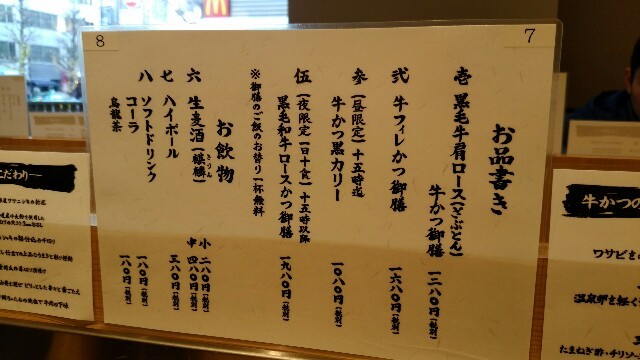 7
お品書き
壱 黒毛牛肩ロース(ざぶとん)
牛かつ御膳 一二八〇円(税別)
弐 牛フィレかつ御膳 一六八〇円(税別)
参 (昼限定)十五時迄
牛かつ黒カリー 一〇八〇円(税別)
伍 (夜限定)(日十食)十五時以降
黒毛和牛ロースかつ御膳 一九八〇円(税別)
※御膳のご飯のお替り一杯無料
お飲物
六 生麦酒(麒麟) 小 二八〇円(税別)
きりん 中 四八〇円(税別)
七 ハイボール 三八〇円(税別)
八 ソフトドリンク
コーラ 一八〇円(税別)
烏龍茶 一八〇円(税別)
8
こだわり
牛かつの
ワサビを
温泉卵を軽く
たまねぎ酢・チリソー